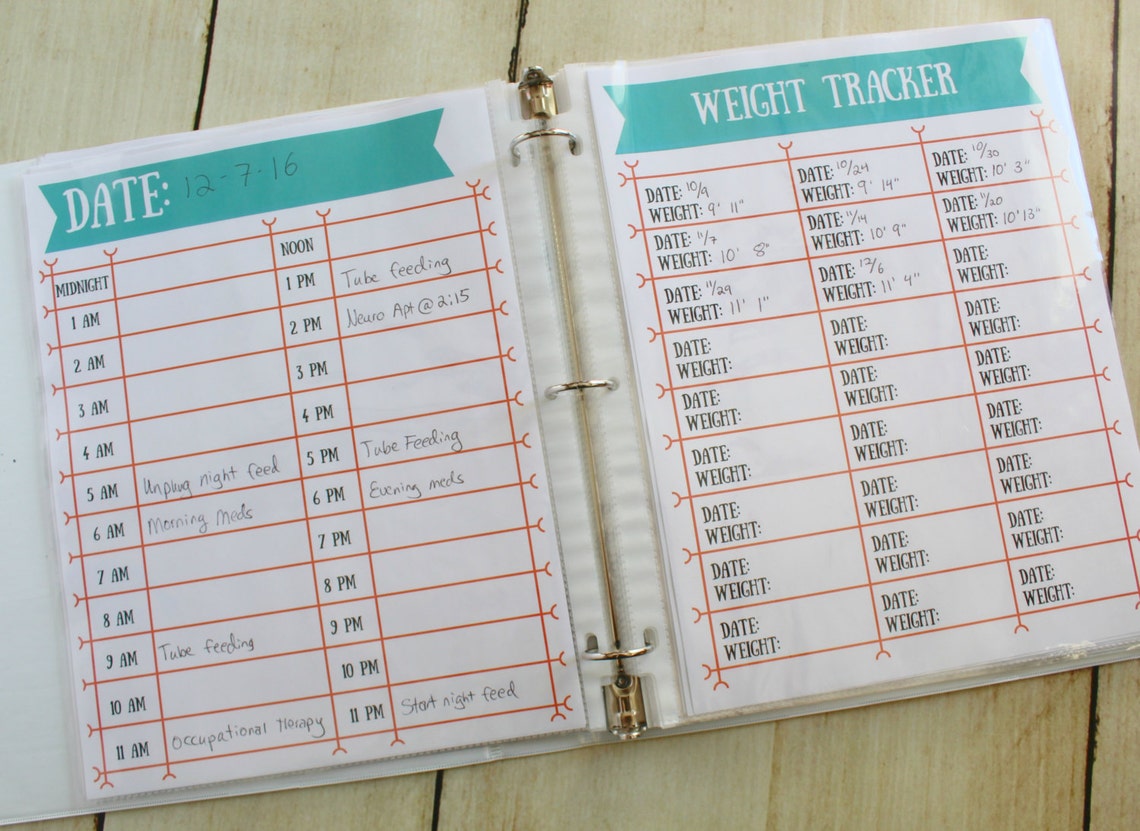 DATE: 12-7-16
MIDNIGHT
1 AM
2 AM
3 AM
4 AM
5 AM Unplug night feed
6 AM Morning Meds
7 AM
8 AM
9 AM Tube feeding
10 AM
11 AM Occupational Therapy
NOON
1 PM Tube feeding
2 PM Neuro Apt @ 2:15
3 PM
4 PM
5 PM Tube Feeding
6 PM Evening meds
7 PM
8 PM
9 PM
10 PM
11 PM Start night feed
WEIGHT TRACKER
DATE: 10/9
WEIGHT: 9' 11"
DATE: 10/24
WEIGHT: 9' 14"
DATE: 10/30
WEIGHT: 10' 3"
DATE: 11/7
WEIGHT: 10' 8"
DATE: 11/14
WEIGHT: 10' 9"
DATE: 11/20
WEIGHT: 10' 13"
DATE: 11/29
WEIGHT: 11' 1"
DATE: 12/6
WEIGHT: 11' 4"
DATE:
WEIGHT:
DATE:
WEIGHT:
DATE:
WEIGHT:
DATE:
WEIGHT:
DATE:
WEIGHT:
DATE:
WEIGHT:
DATE:
WEIGHT:
DATE:
WEIGHT:
DATE:
WEIGHT:
DATE:
WEIGHT:
DATE:
WEIGHT:
DATE:
WEIGHT:
DATE:
WEIGHT:
DATE:
WEIGHT:
DATE:
WEIGHT:
DATE:
WEIGHT:
DATE:
WEIGHT:
DATE:
WEIGHT:
DATE:
WEIGHT: